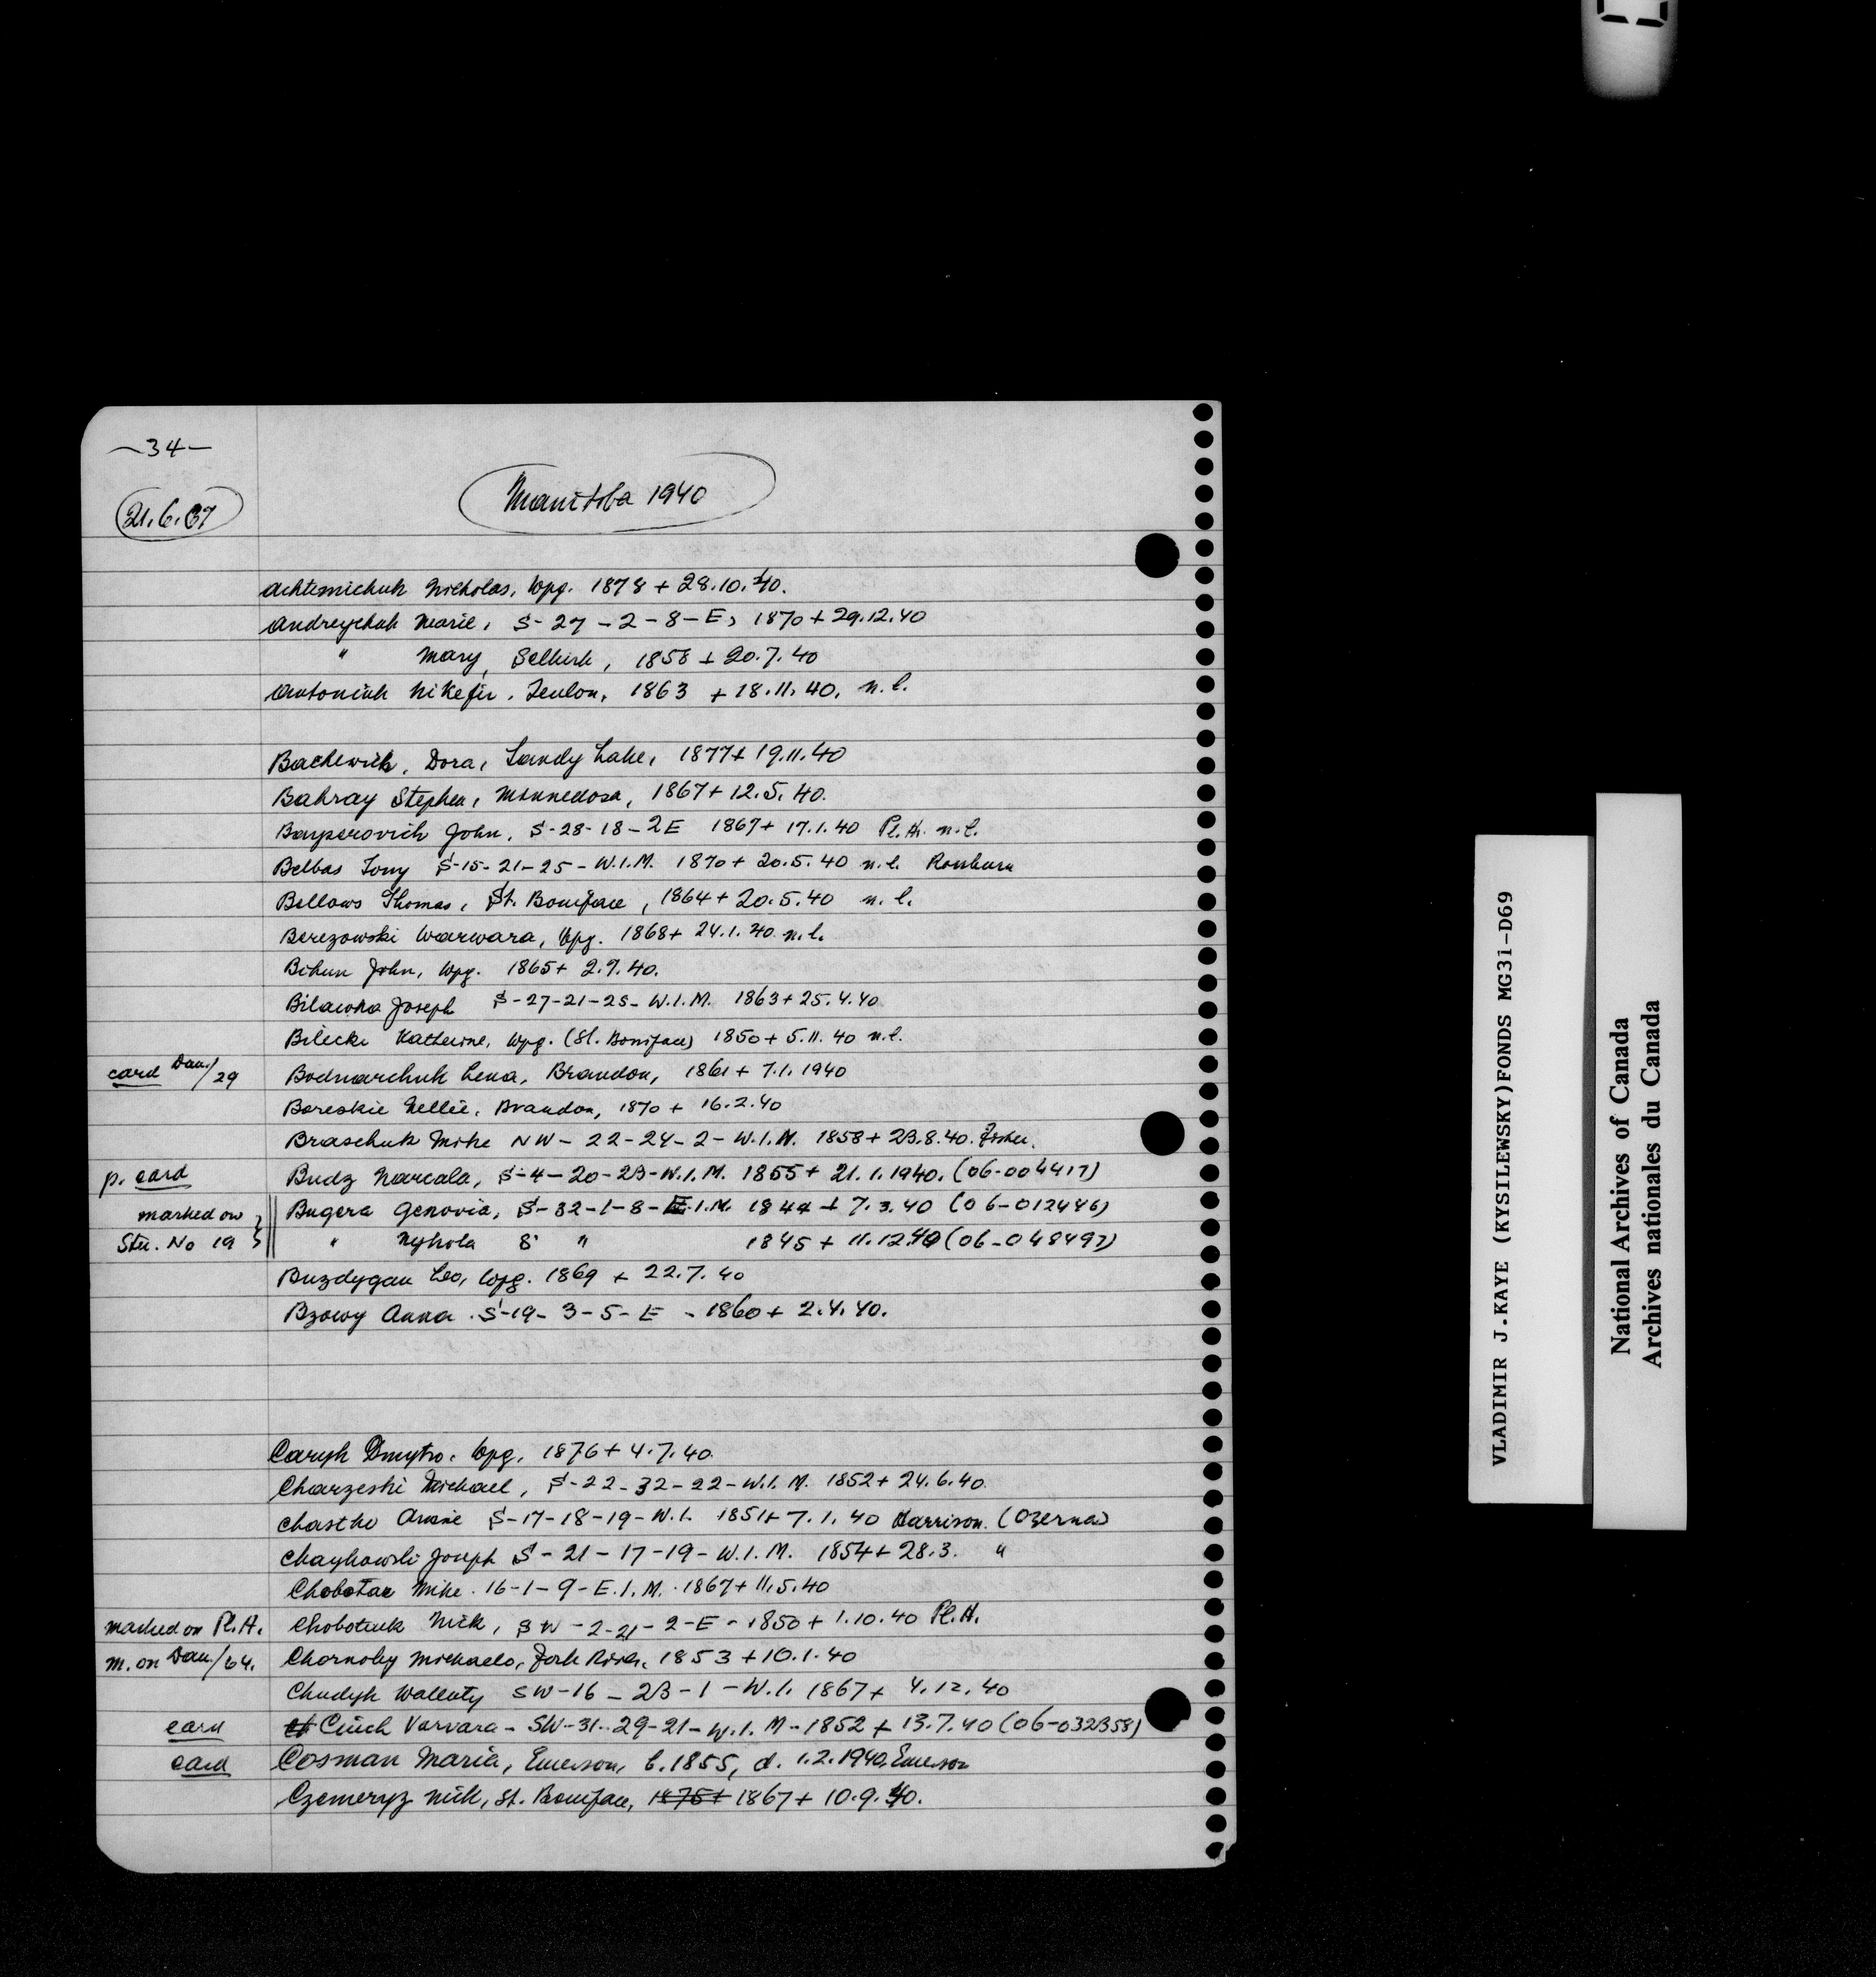 -34-
21.6.67
Manitoba 1940
Achtemichuk Nicholas, Wpg. 1878 + 28.10.40.
Andreychuk Marie, S-27-2-8-E, 1870 + 29.12.40
" Mary, Selkirk, 1858 + 20.7.40
Antoniuk Nikefir, Teulon, 1863 + 18.11.40, n.l.
Bachewich, Dora, Sandy Lake, 1877 + 19.11.40
Bahray Stephen, Minnedosa, 1867 + 12.5.40.
John, S-28-18-2E 1867 + 17.1.40 Pl.H. n.l.
Belbas Tony S-15-21-25-W.1.M. 1870 + 20.5.40 n.l. Rossburn
Bellows Thomas, St. Boniface, 1864 + 20.5.40 n.l.
Berezowski Warwara, Wpg. 1868 + 24.1.40 n.l.
Bihun John, Wpg. 1865 + 2.9.40.
Joseph S-27-21-25-W.1.M. 1863 + 25.4.40
Bilecki Katherine, Wpg. (St. Boniface) 1850 + 5.11.40 n.l.
card Dau./29 Bodnarchuk Lena, Brandon, 1861 + 7.1.1940
Boreskie Nellie, Brandon, 1870 + 16.2.40
Braschuk Mike NW-22-24-2-W.1.M. 1858 + 23.8.40. Fisher.
p. card Budz Marcala, S-4-20-23-W.1.M. 1855 + 21.1.1940. (06-004417)
marked on Bugera Genovia, S-32-1-8-E.1.M. 1844 + 7.3.40 (06-012446)
Stu. No 19 " Nykola S " 1845 + 11.12.40 (06-048497)
Buzdygan Leo, Wpg. 1869 + 22.7.40
Bzowy Anna. S-19-3-5-E - 1860 + 2.4.40.
Caryk Dmytro. Wpg, 1876 + 4.7.40.
Charzeski Michael, S-22-32-22-W.1.M. 1852 + 24.6.40.
Chastko S-17-18-19-W.1. 1851 + 7.1.40 Harrison. (Ozerna)
Chaykowski Joseph S-21-17-19-W.1.M. 1854 + 28.3. "
Chobotar Mike. 16-1-9-E.1.M. 1867 + 11.5.40
marked on Pl.H. Chobotiuk Nick, SW-2-21-2-E - 1850 + 1.10.40 Pl.H.
m. on Dau./64. Chornoby Michaelo, Fork River, 1853 + 10.1.40
Chudyk Wallaty SW-16-23-1-W.1. 1867 + 4.12.40
card Ciuch Varvara - SW-31-29-21-W.1.M - 1852 + 13.7.40 (06-032358)
card Cosman Maria, Emerson, b.1855, d. 1.2.1940, Emerson
Czemeryz Nick, St. Boniface, 1875+ 1867 + 10.9.40.
VLADIMIR J.KAYE (KYSILEWSKY)FONDS MG31-D69
National Archives of Canada
Archives nationales du Canada